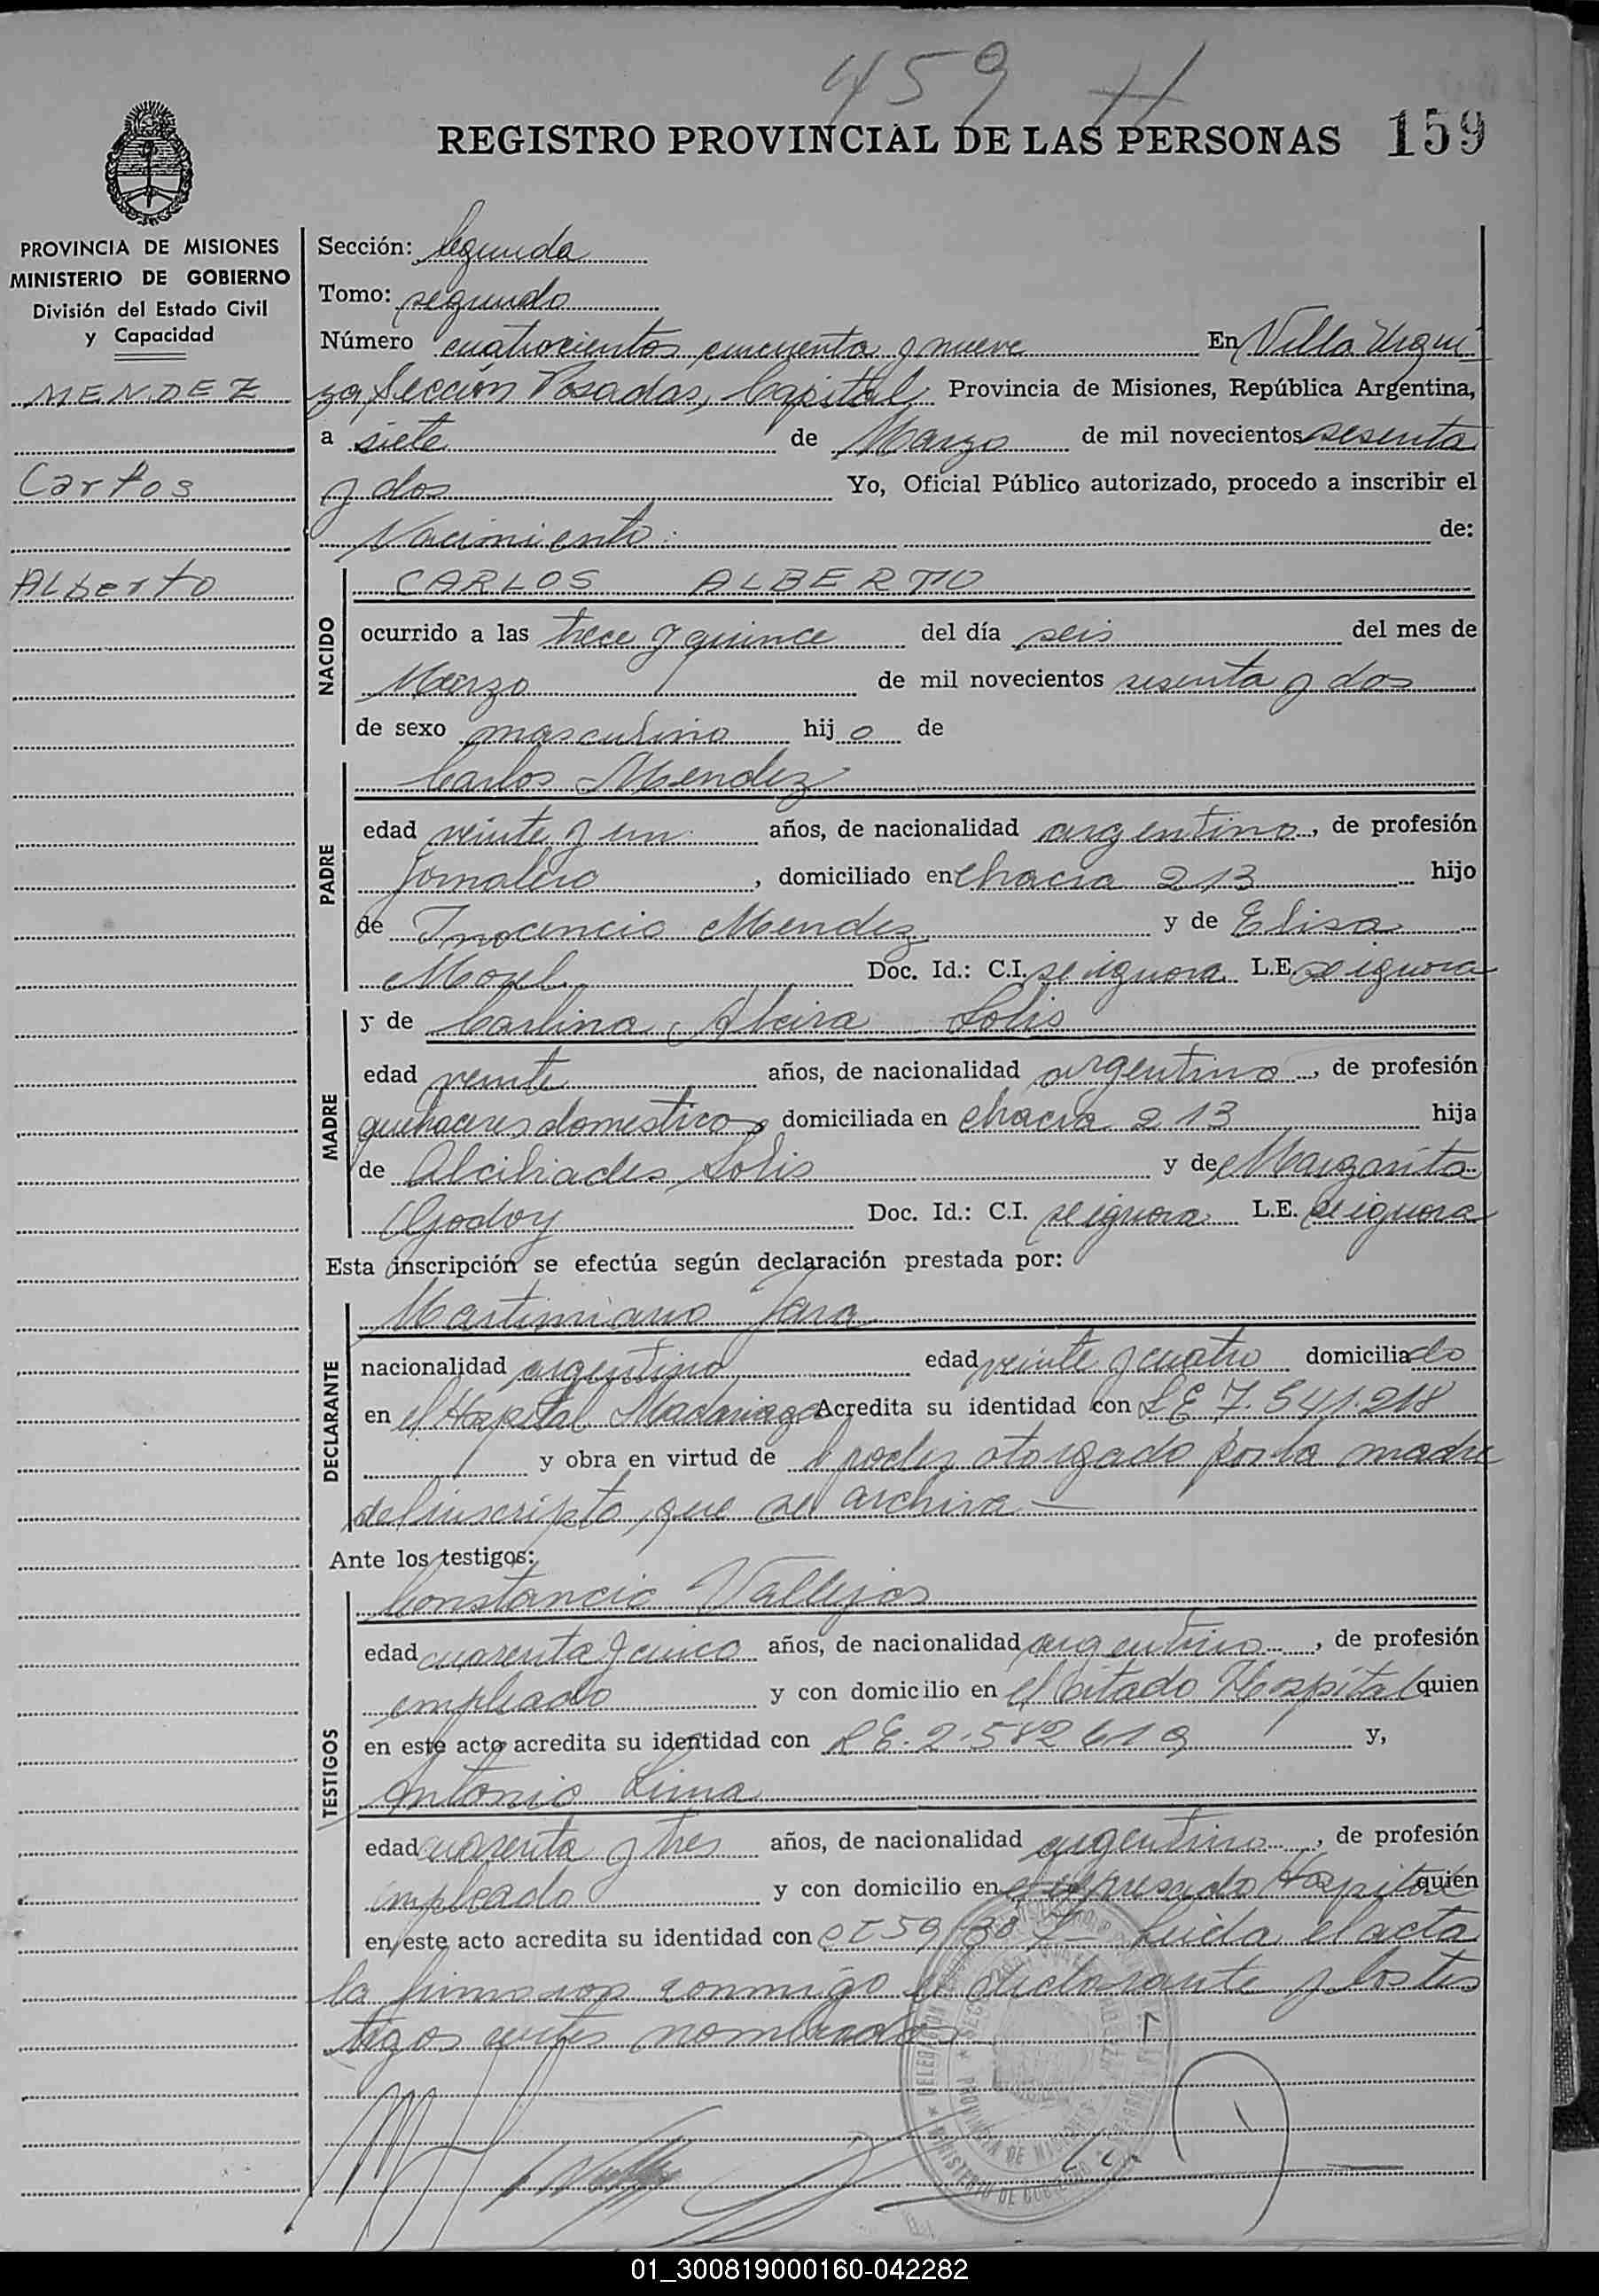 459 H
REGISTRO PROVINCIAL DE LAS PERSONAS 159
PROVINCIA DE MISIONES
MINISTERIO DE GOBIERNO
División del Estado Civil
y Capacidad
MENDEZ
Carlos
Alberto
Sección: Segunda
Tomo: segundo
Número cuatrocientos cincuenta y nueve En Villa Urqui
za, Sección Posadas, Capital Provincia de Misiones, República Argentina,
a siete de Marzo de mil novecientos sesenta
y dos Yo, Oficial Público autorizado, procedo a inscribir el
Nacimiento de:
NACIDO
CARLOS ALBERTO
ocurrido a las trece y quince del día seis del mes de
Marzo de mil novecientos sesenta y dos
de sexo masculino hijo de
PADRE
Carlos Mendez
edad veinte y un años, de nacionalidad argentino, de profesión
Jornalero, domiciliado en chacra 213 hijo
de Inocencio Mendez y de Elisa
Morel Doc. Id.: C.I. se ignora L.E. se ignora
MADRE
y de Carlina Alcira Solis
edad veinte años, de nacionalidad argentina, de profesión
quehaceres domesticos domiciliada en chacra 213 hija
de Alcibiades Solis y de Margarita
Godoy Doc. Id.: C.I. se ignora L.E. se ignora
Esta inscripción se efectúa según declaración prestada por:
DECLARANTE
Martimiano Jara
nacionalidad argentino edad veinte y cuatro domiciliado
en el Hospital Madariaga Acredita su identidad con LE 7.541.218
y obra en virtud de poder otorgado por la madre
del inscripto, que se archiva —
Ante los testigos:
TESTIGOS
Constancio Vallejos
edad cuarenta y cinco años, de nacionalidad argentino, de profesión
empleado y con domicilio en el citado Hospital quien
en este acto acredita su identidad con LE. 2.582619 y,
Antonio Lima
edad cuarenta y tres años, de nacionalidad argentino, de profesión
empleado y con domicilio en el expresado Hospital quien
en este acto acredita su identidad con Leida el acta
la firmaron conmigo el declarante y los tes
tigos antes nombrados
01_300819000160-042282